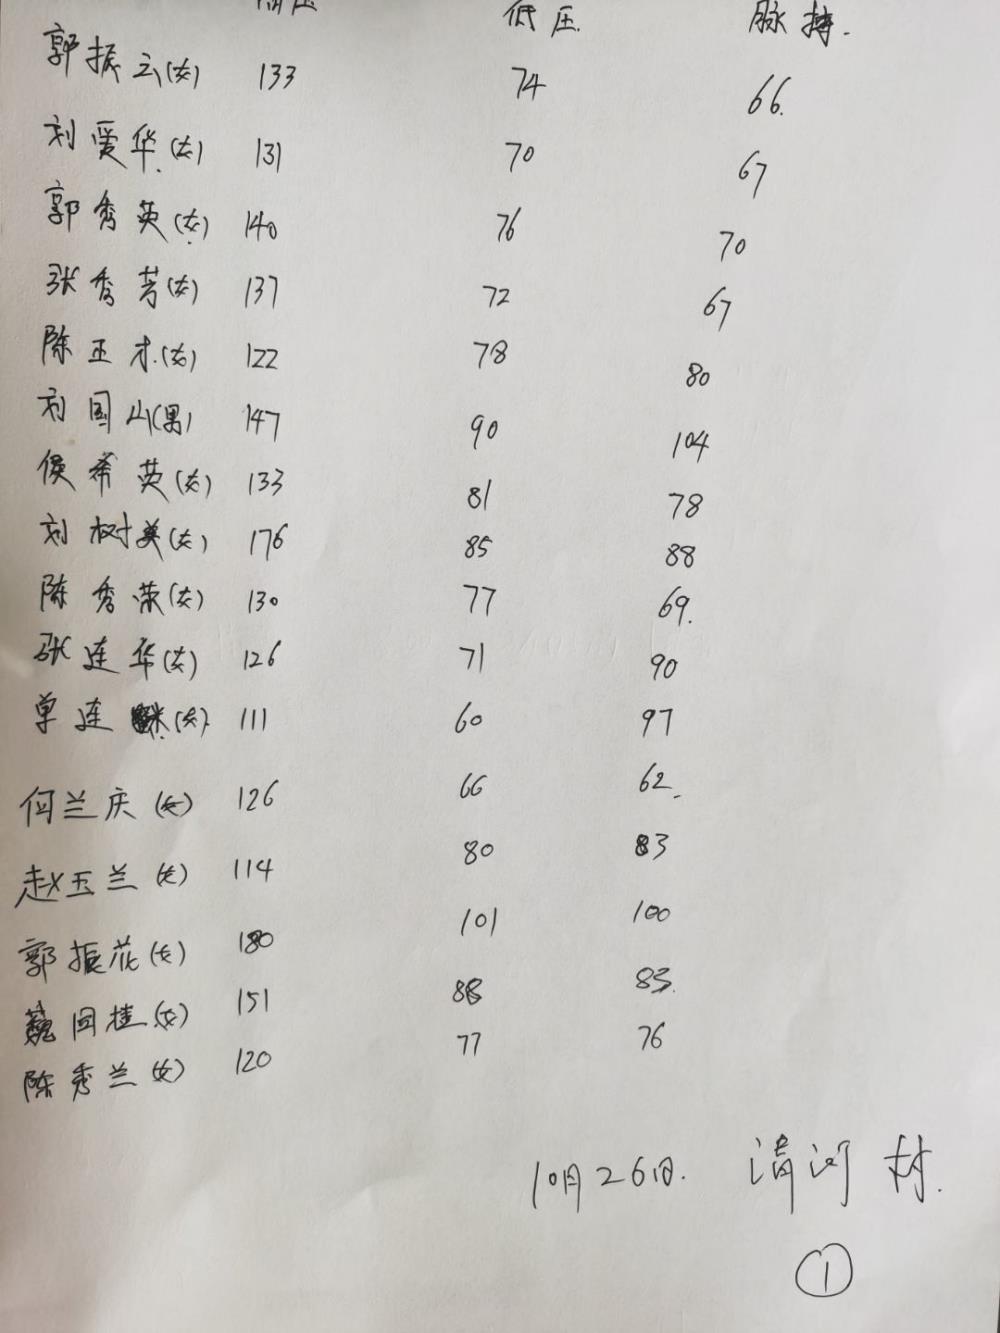 高压 低压 脉搏.
郭振云(女) 133 74 66.
刘爱华(女) 131 70 67
郭秀英(女) 140 76 70
张秀芳(女) 137 72 67
陈玉才.(女) 122 78 80
刘国山(男) 147 90 104
侯希英(女) 133 81 78
刘树英(女) 176 85 88
陈秀荣(女) 130 77 69.
张连华(女) 126 71 90
单连(女) 111 60 97
何兰庆(女) 126 66 62.
赵玉兰(女) 114 80 83
郭振花(女) 180 101 100
魏同桂(女) 151 88 83.
陈秀兰(女) 120 77 76
10月26日. 清河村.
①